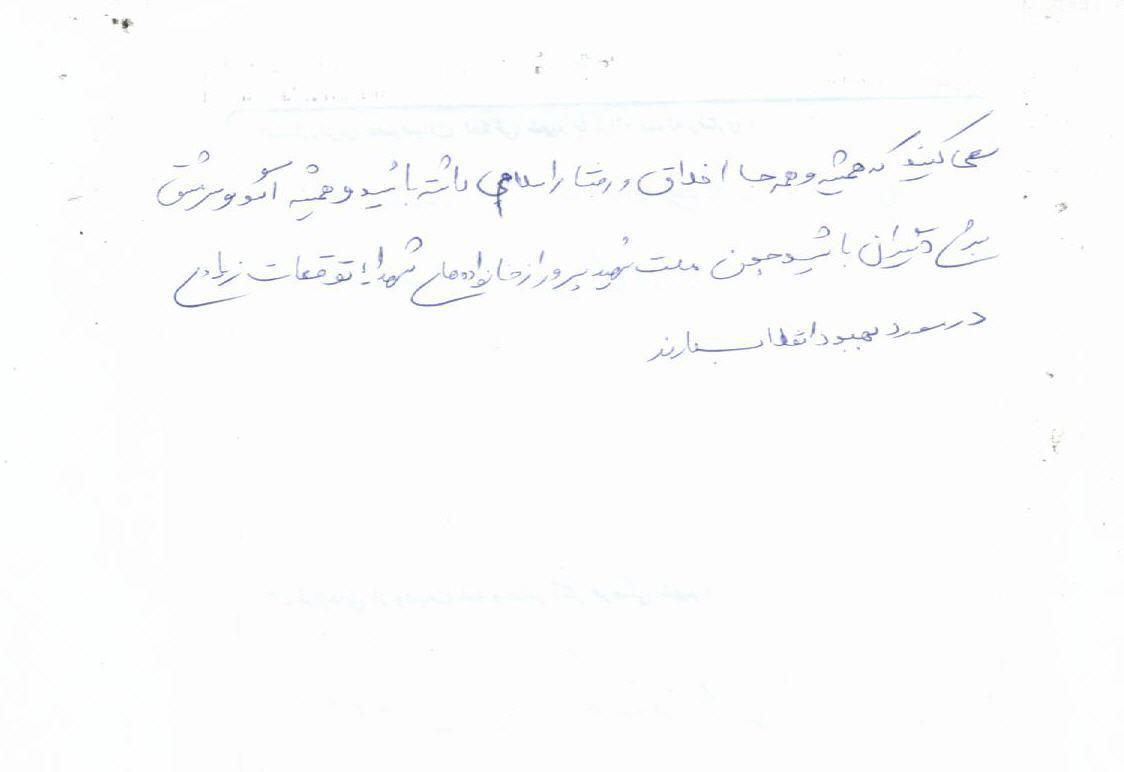 سعی کنید که همیشه و همه جا اخلاق و رفتار اسلامی داشته باشید و همیشه الگو و سرمشق
برای دیگران باشید چون ملت شهید پرور از خانواده های شهدا توقعات زیادی
در مورد بهبود انقلاب دارند